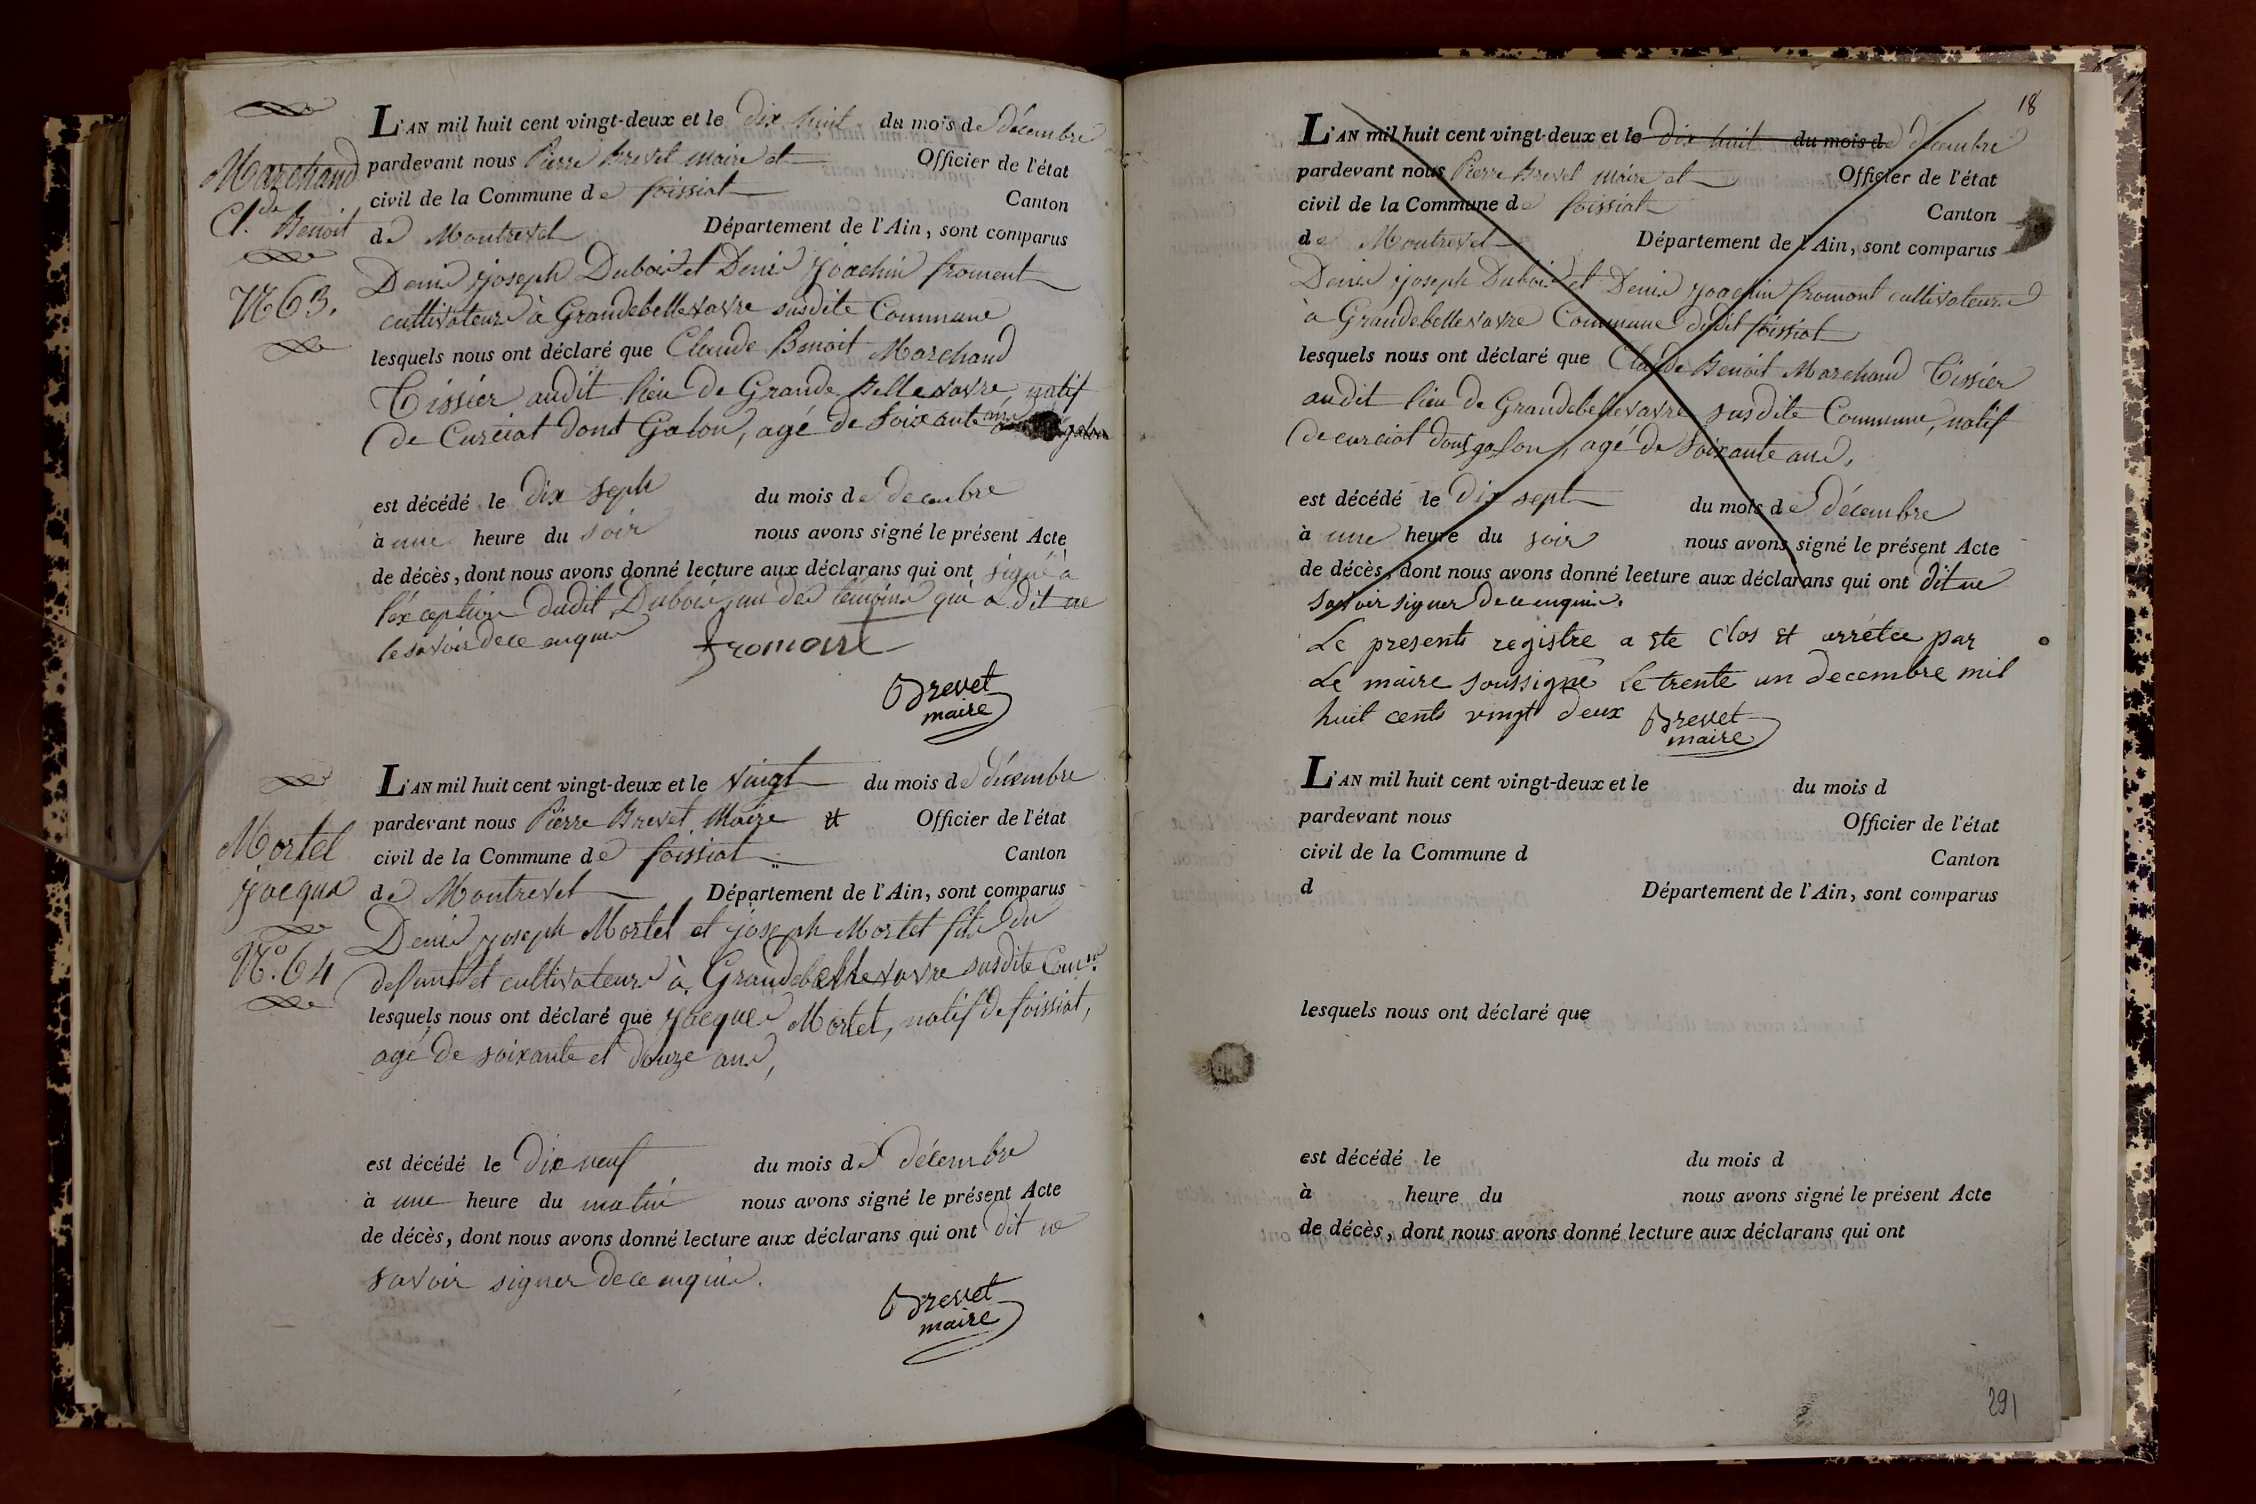 Marchand
Cl.de Benoit
N.o 63.
L'AN mil huit cent vingt-deux et le dix huit du mois de décembre
pardevant nous Pierre Brevet maire et Officier de l'état
civil de la Commune de foissiat Canton
de Montrevel Département de l'Ain, sont comparus
Denis joseph Dubois et Denis joachin froment
cultivateurs à Grandebellevavre susdite Commune
lesquels nous ont déclaré que Claude Benoit Marchand
Tissier audit lieu de Grande Bellevavre, natif
de Curciat Dont Galon, agé de soixante ans
est décédé le dix sept du mois de décembre
à une heure du soir nous avons signé le présent Acte
de décès, dont nous avons donné lecture aux déclarans qui ont signé à
l'éxception dudit Dubois, un des témoins qui a dit ne
le savoir de ce enquis
froment
Brevet
maire
Mortel
jacques
N.o 64
L'AN mil huit cent vingt-deux et le vingt du mois de décembre
pardevant nous Pierre Brevet Maire et Officier de l'état
civil de la Commune de foissiat Canton
de Montrevel Département de l'Ain, sont comparus
Denis joseph Mortel et joseph Mortel fils du
defunt et cultivateurs à Grandebellevavre susdite Com.ne
lesquels nous ont déclaré que jacques Mortel, natif de foissiat,
agé de soixante et douze ans,
est décédé le dix neuf du mois de décembre
à une heure du matin nous avons signé le présent Acte
de décès, dont nous avons donné lecture aux déclarans qui ont dit ne
savoir signer de ce enquis.
Brevet
maire
18
L'AN mil huit cent vingt-deux et le dix huit du mois de décembre
pardevant nous Pierre Brevet maire et Officier de l'état
civil de la Commune de foissiat Canton
de Montrevel Département de l'Ain, sont comparus
Denis joseph Dubois et Denis joachin froment cultivateurs
à Grandebellevavre Commune dudit foissiat
lesquels nous ont déclaré que Claude Benoit Marchand Tissier
audit lieu de Grandebellevavre susdite Commune, natif
de curciat dontgalon, agé de soixante ans,
est décédé le dix sept du mois de décembre
à une heure du soir nous avons signé le présent Acte
de décès, dont nous avons donné lecture aux déclarans qui ont dit ne
savoir signer de ce enquis.
Le presents registre a ete clos et arrétee par
Le maire soussigné le trente un decembre mil
huit cents vingt deux
Brevet
maire
L'AN mil huit cent vingt-deux et le du mois d
pardevant nous Officier de l'état
civil de la Commune d Canton
d Département de l'Ain, sont comparus
lesquels nous ont déclaré que
est décédé le du mois d
à heure du nous avons signé le présent Acte
de décès, dont nous avons donné lecture aux déclarans qui ont
291